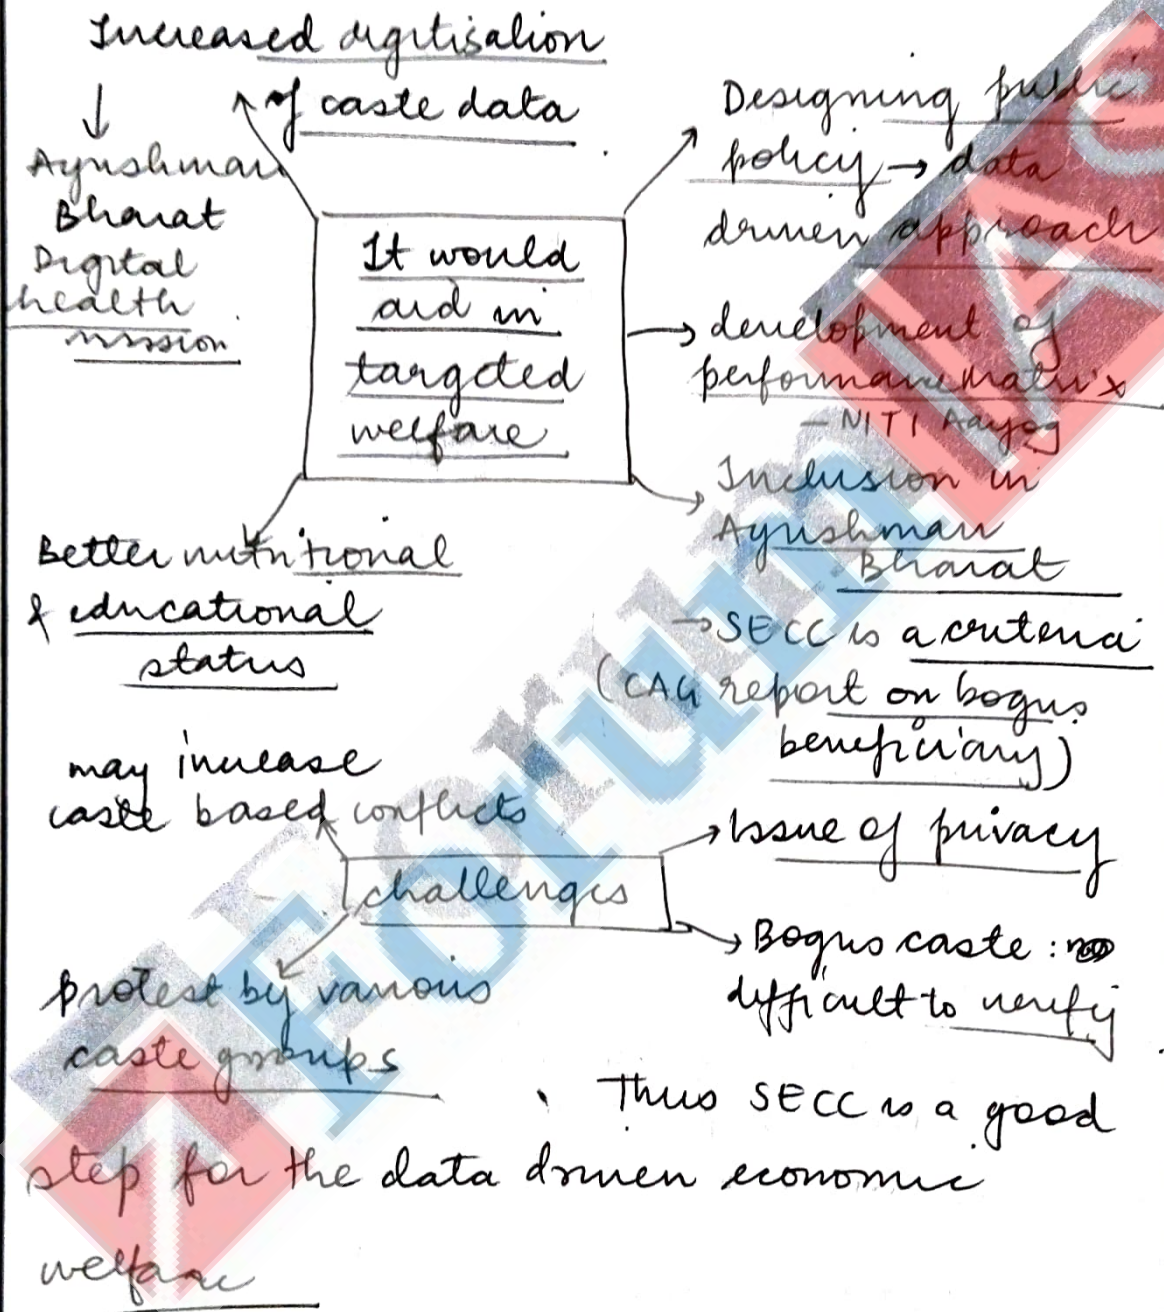 Increased digitisation
of caste data
Ayushman
Bharat
Digital
health
mission
Designing public
policy → data
driven approach
It would
aid in
targeted
welfare
→ development of
performance matrix
- NITI Aayog
Inclusion in
Ayushman
Bharat
→ SECC is a criteria
(CAG report on bogus
beneficiary)
Better nutritional
& educational
status
may increase
caste based conflicts
challenges
→ Issue of privacy
→ Bogus caste :
difficult to verify
protest by various
caste groups
Thus SECC is a good
step for the data driven economic
welfare
ForumIAS